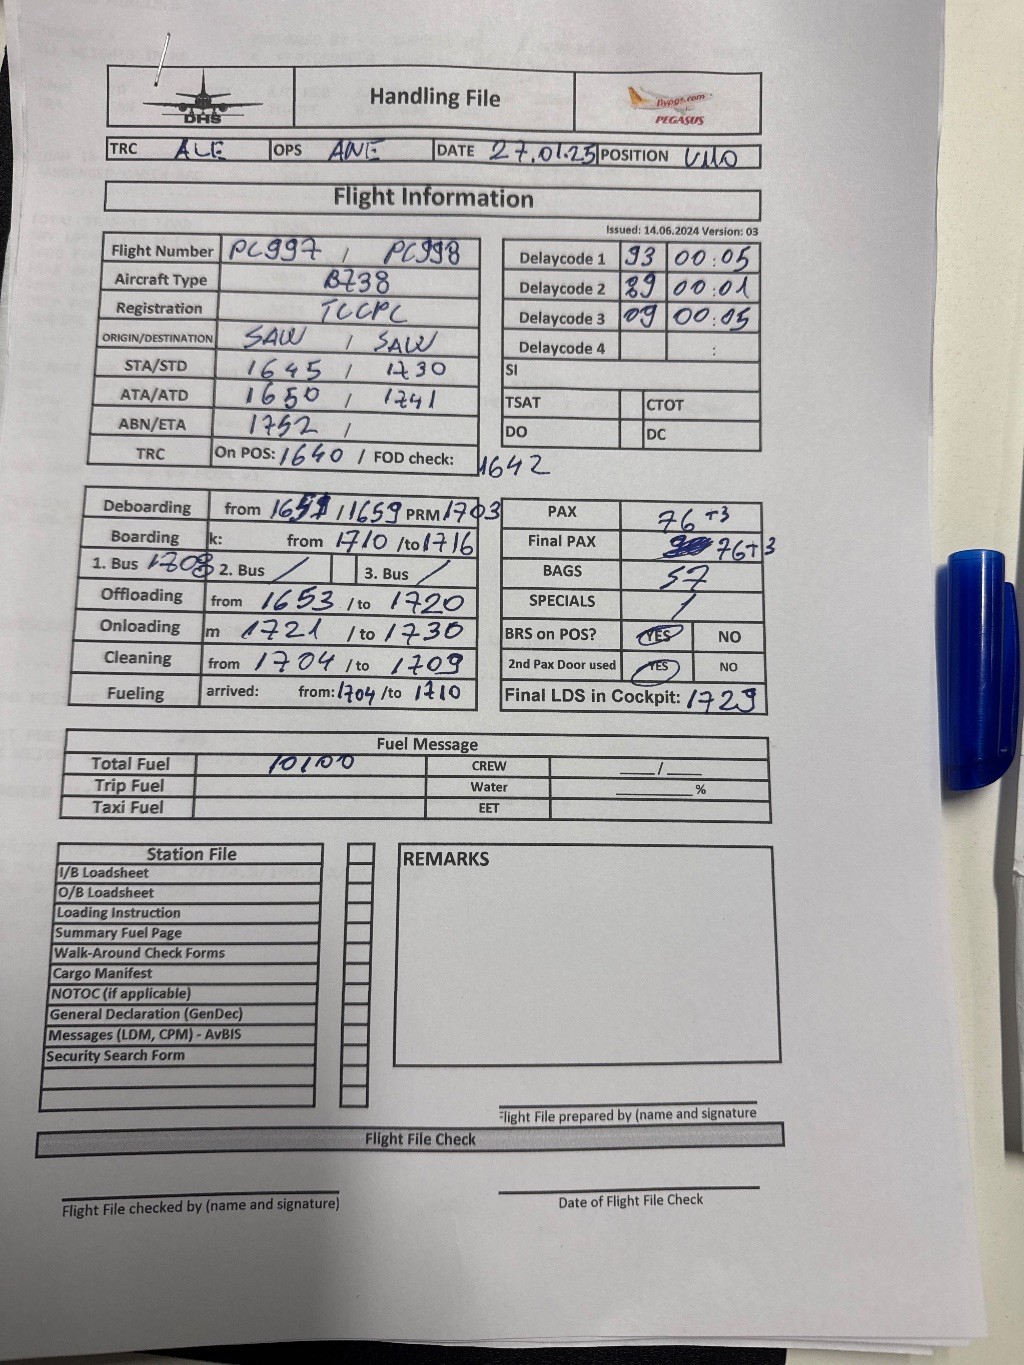 DHS
Handling File
flypgs.com
PEGASUS
TRC ALE OPS ANE DATE 27.01.25 POSITION V110
Flight Information
Issued: 14.06.2024 Version: 03
Flight Number PC997 / PC998
Aircraft Type B738
Registration TCCPC
ORIGIN/DESTINATION SAW / SAW
STA/STD 1645 / 1730
ATA/ATD 1650 / 1741
ABN/ETA 1752 /
TRC On POS: 1640 / FOD check: 1642
Delaycode 1 93 00:05
Delaycode 2 89 00:01
Delaycode 3 09 00:05
Delaycode 4 :
SI
TSAT CTOT
DO DC
Deboarding from 1651 / 1659 PRM 1703
Boarding k: from 1710 /to 1716
1. Bus 1708 2. Bus / 3. Bus /
Offloading from 1653 / to 1720
Onloading m 1721 / to 1730
Cleaning from 1704 / to 1709
Fueling arrived: from: 1704 /to 1710
PAX 76+3
Final PAX 76+3
BAGS 57
SPECIALS /
BRS on POS? YES NO
2nd Pax Door used YES NO
Final LDS in Cockpit: 1729
Fuel Message
Total Fuel 10100 CREW ___/___
Trip Fuel Water ________%
Taxi Fuel EET
Station File
I/B Loadsheet
O/B Loadsheet
Loading Instruction
Summary Fuel Page
Walk-Around Check Forms
Cargo Manifest
NOTOC (if applicable)
General Declaration (GenDec)
Messages (LDM, CPM) - AvBIS
Security Search Form
REMARKS
Flight File prepared by (name and signature
Flight File Check
Flight File checked by (name and signature)
Date of Flight File Check